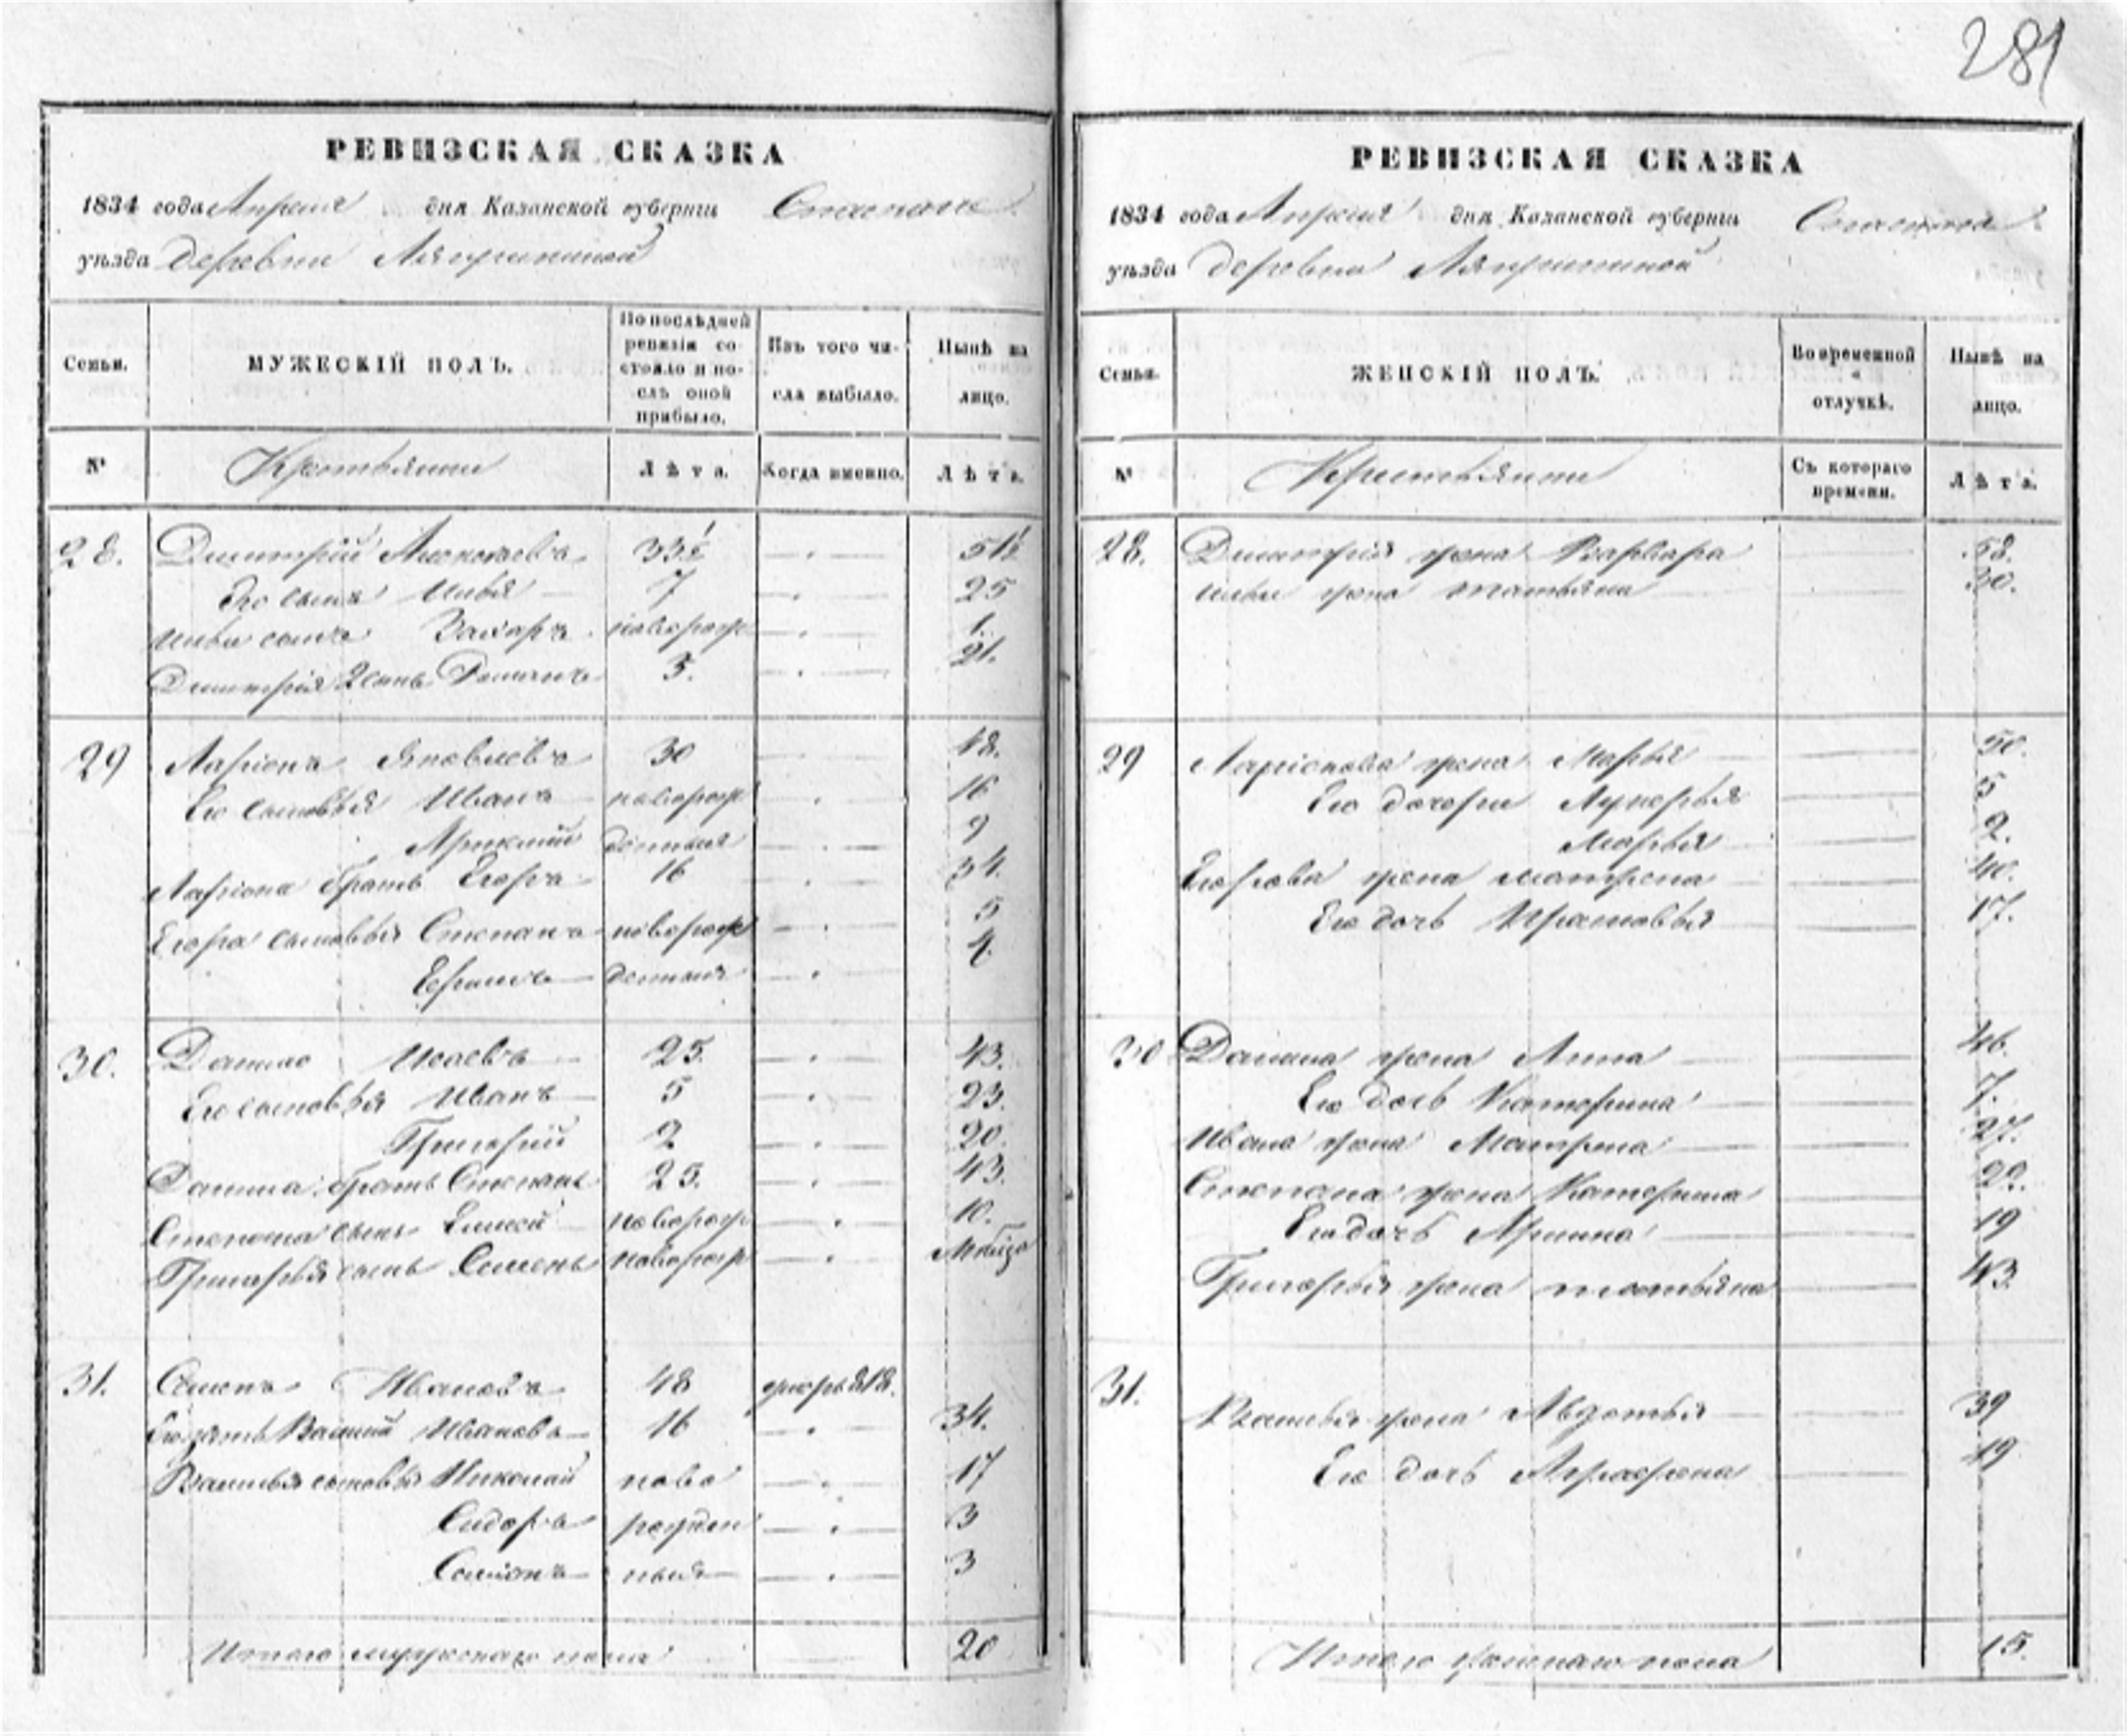 281
РЕВИЗСКАЯ СКАЗКА
1834 года Апреля дня Казанской губернiи Спаскаго
уѣзда деревни
Семьи.
МУЖЕСКІЙ ПОЛЪ.
По послѣдней ревизіи состояло и послѣ оной прибыло.
Изъ того числа выбыло.
Нынѣ на лицо.
№
Крестьянѣ
Лѣта.
Когда именно.
Лѣта.
28. Дмитрій Алексѣевъ 33½ 51½
Его сынъ Илья 7 25
Ильи сынъ Захаръ новорож 1.
Дмитрія 2 сынъ 3. 21.
29 Ларіонъ Яковлевъ 30 48.
Его сыновья Иванъ новорож 16
9
Ларіона братъ Егоръ 16 34.
Егора сыновья Степанъ новорож 5
4
30. Данило Исаевъ 25. 43.
Его сыновья Иванъ 5 23.
Григорій 2 20.
Данила братъ Степанъ 25. 43.
Степана сынъ Елисей новорож 10.
Григорья сынъ Семенъ новорож
31. Семенъ Ивановъ 48
Его зять Василій Ивановъ 16 34.
Василья сыновья Николай ново 17
Сидоръ рожден 3
ныя 3
Итого мужскаго пола 20
РЕВИЗСКАЯ СКАЗКА
1834 года Апреля дня Казанской губернiи Спаскаго
уѣзда деревни
Семьи.
ЖЕНСКІЙ ПОЛЪ.
Во временной отлучкѣ.
Нынѣ на лицо.
№
Крестьянѣ
Съ котораго времени.
Лѣта.
28. Дмитрія жена Варвара 58.
Ильи жена Татьяна 30.
29 Ларіонова жена Марья 50.
Его дочери Лукерья 5
Марья 2.
Егорова жена Матрена 40.
Его дочь 17.
30 Данила жена Анна 46.
Его дочь Катерина 7.
Ивана жена Матрена 27.
Степана жена Катерина 22.
Его дочь Арина 19
Григорья жена Татьяна 43.
31. Василья жена Авдотья 39
Его дочь Аграфена 19
Итого женскаго пола 15.